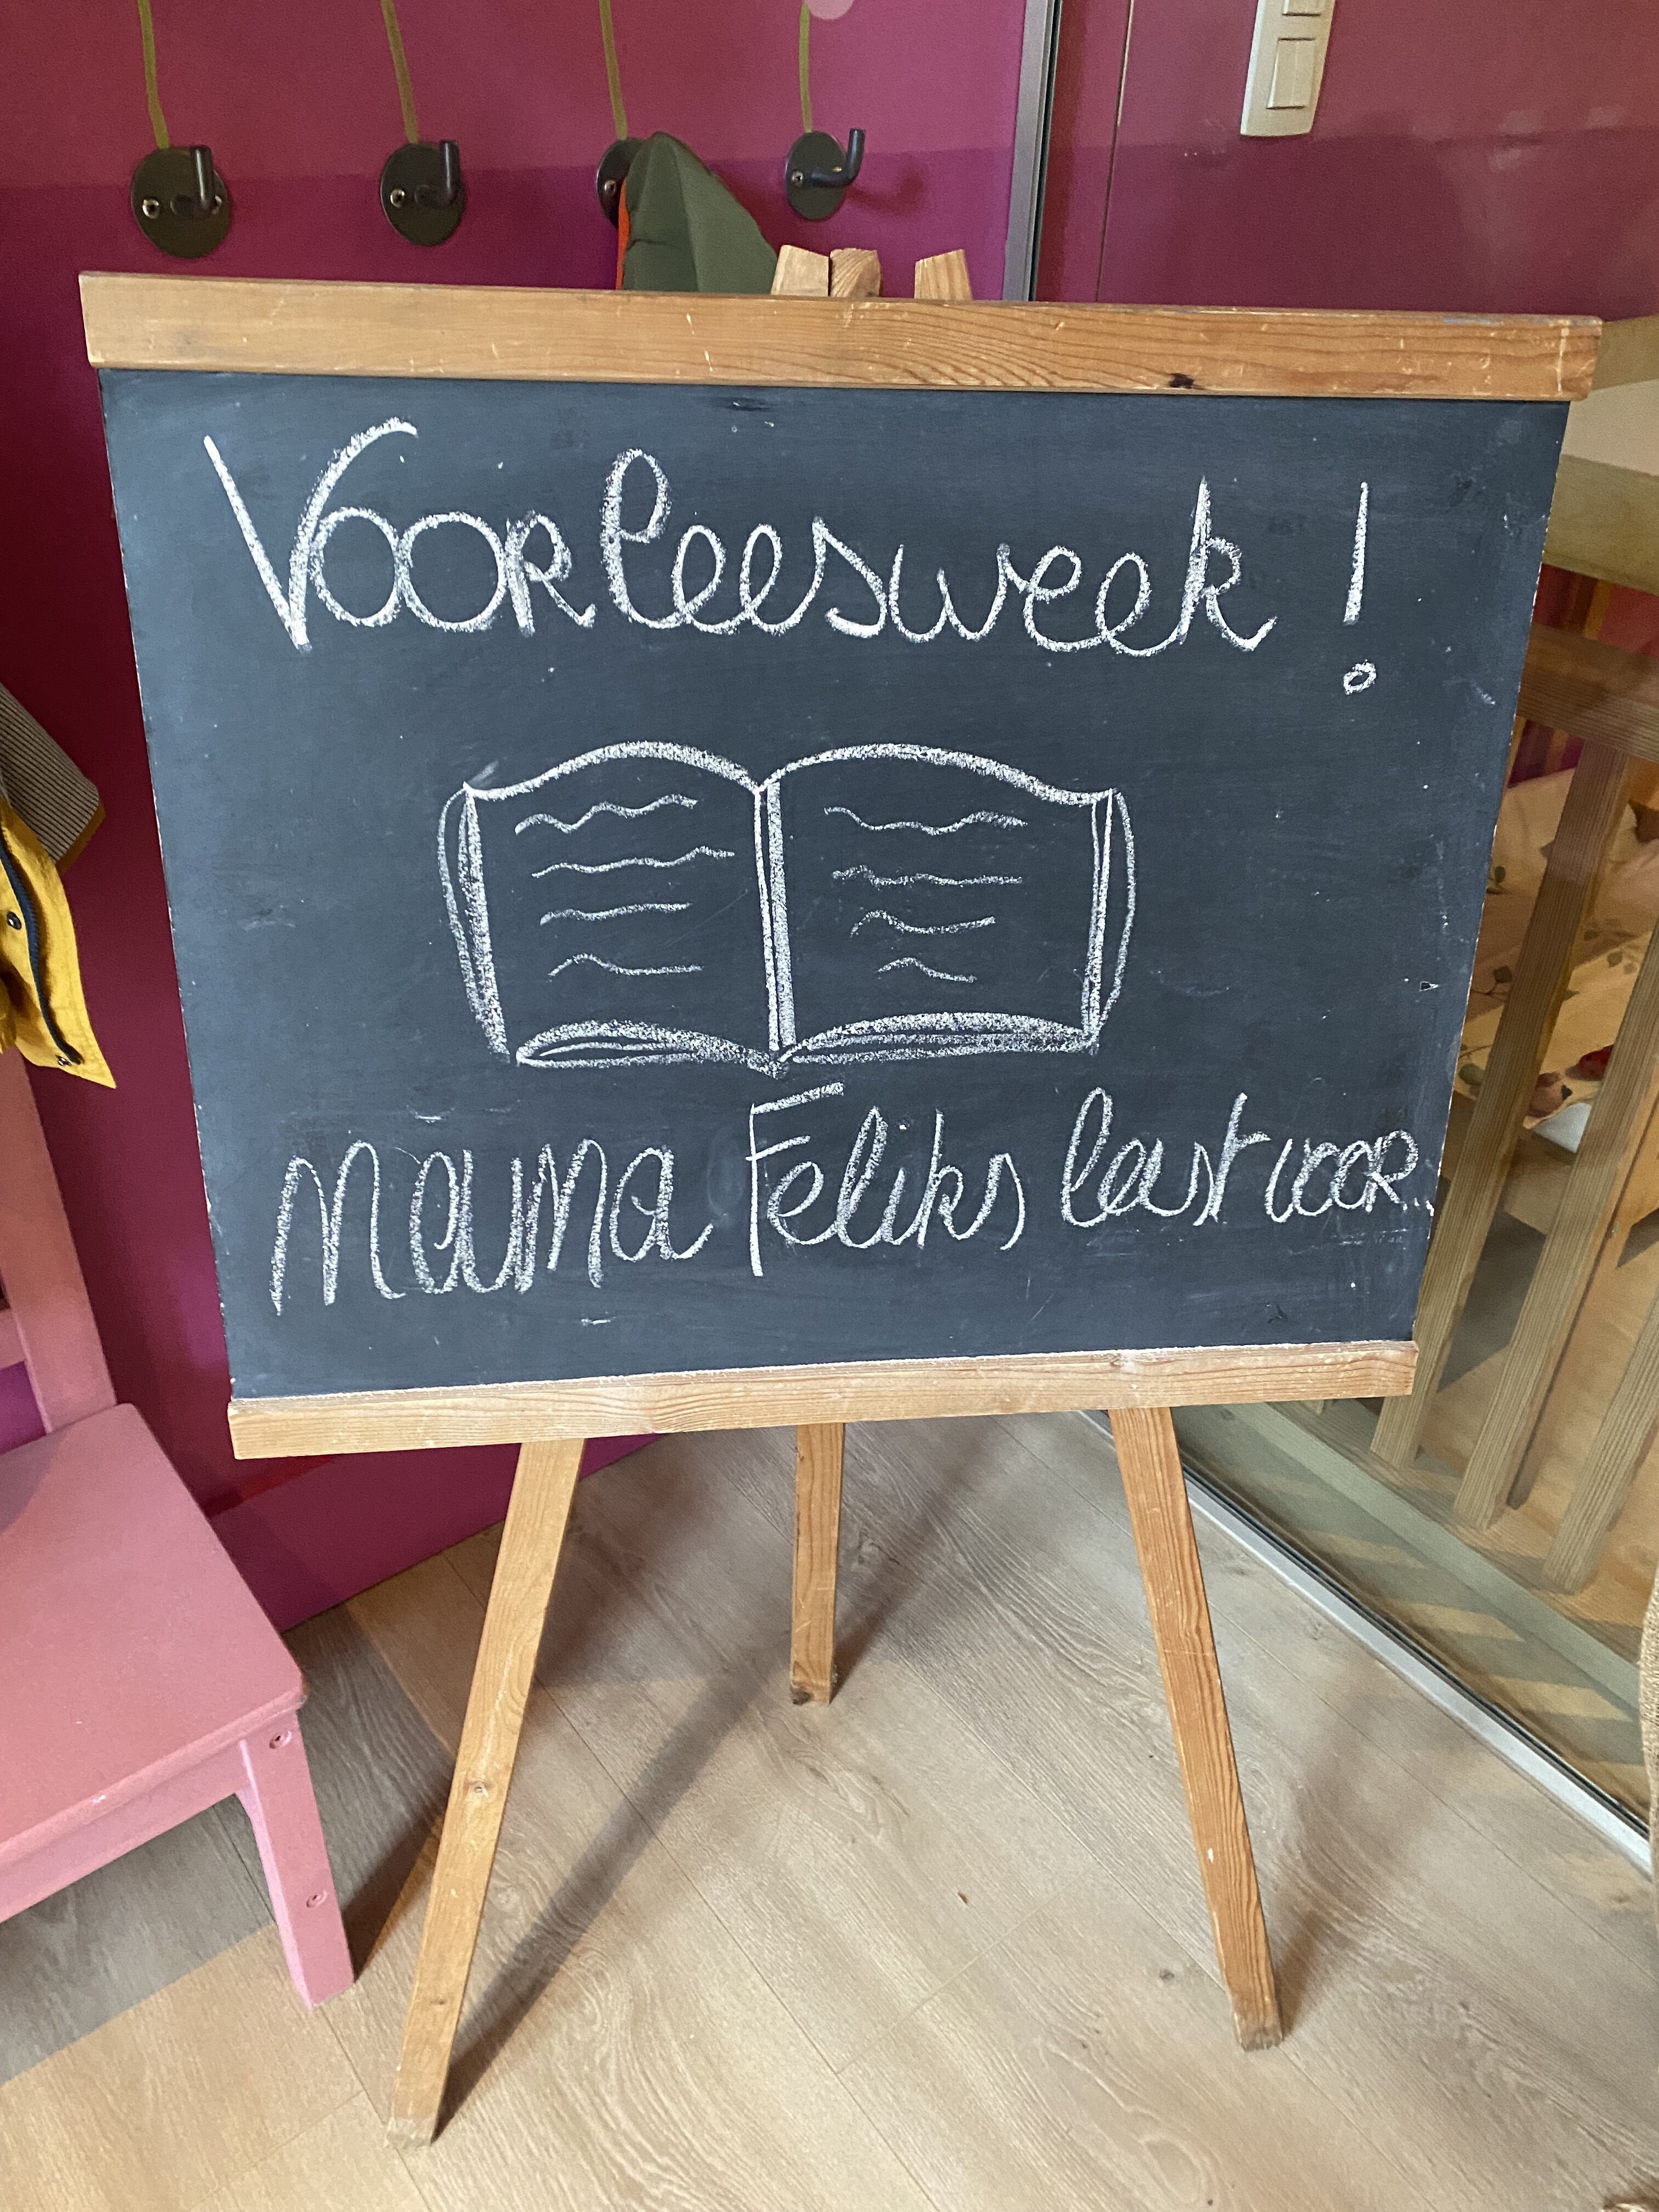 Voorleesweek!
mama Feliks leest voor...